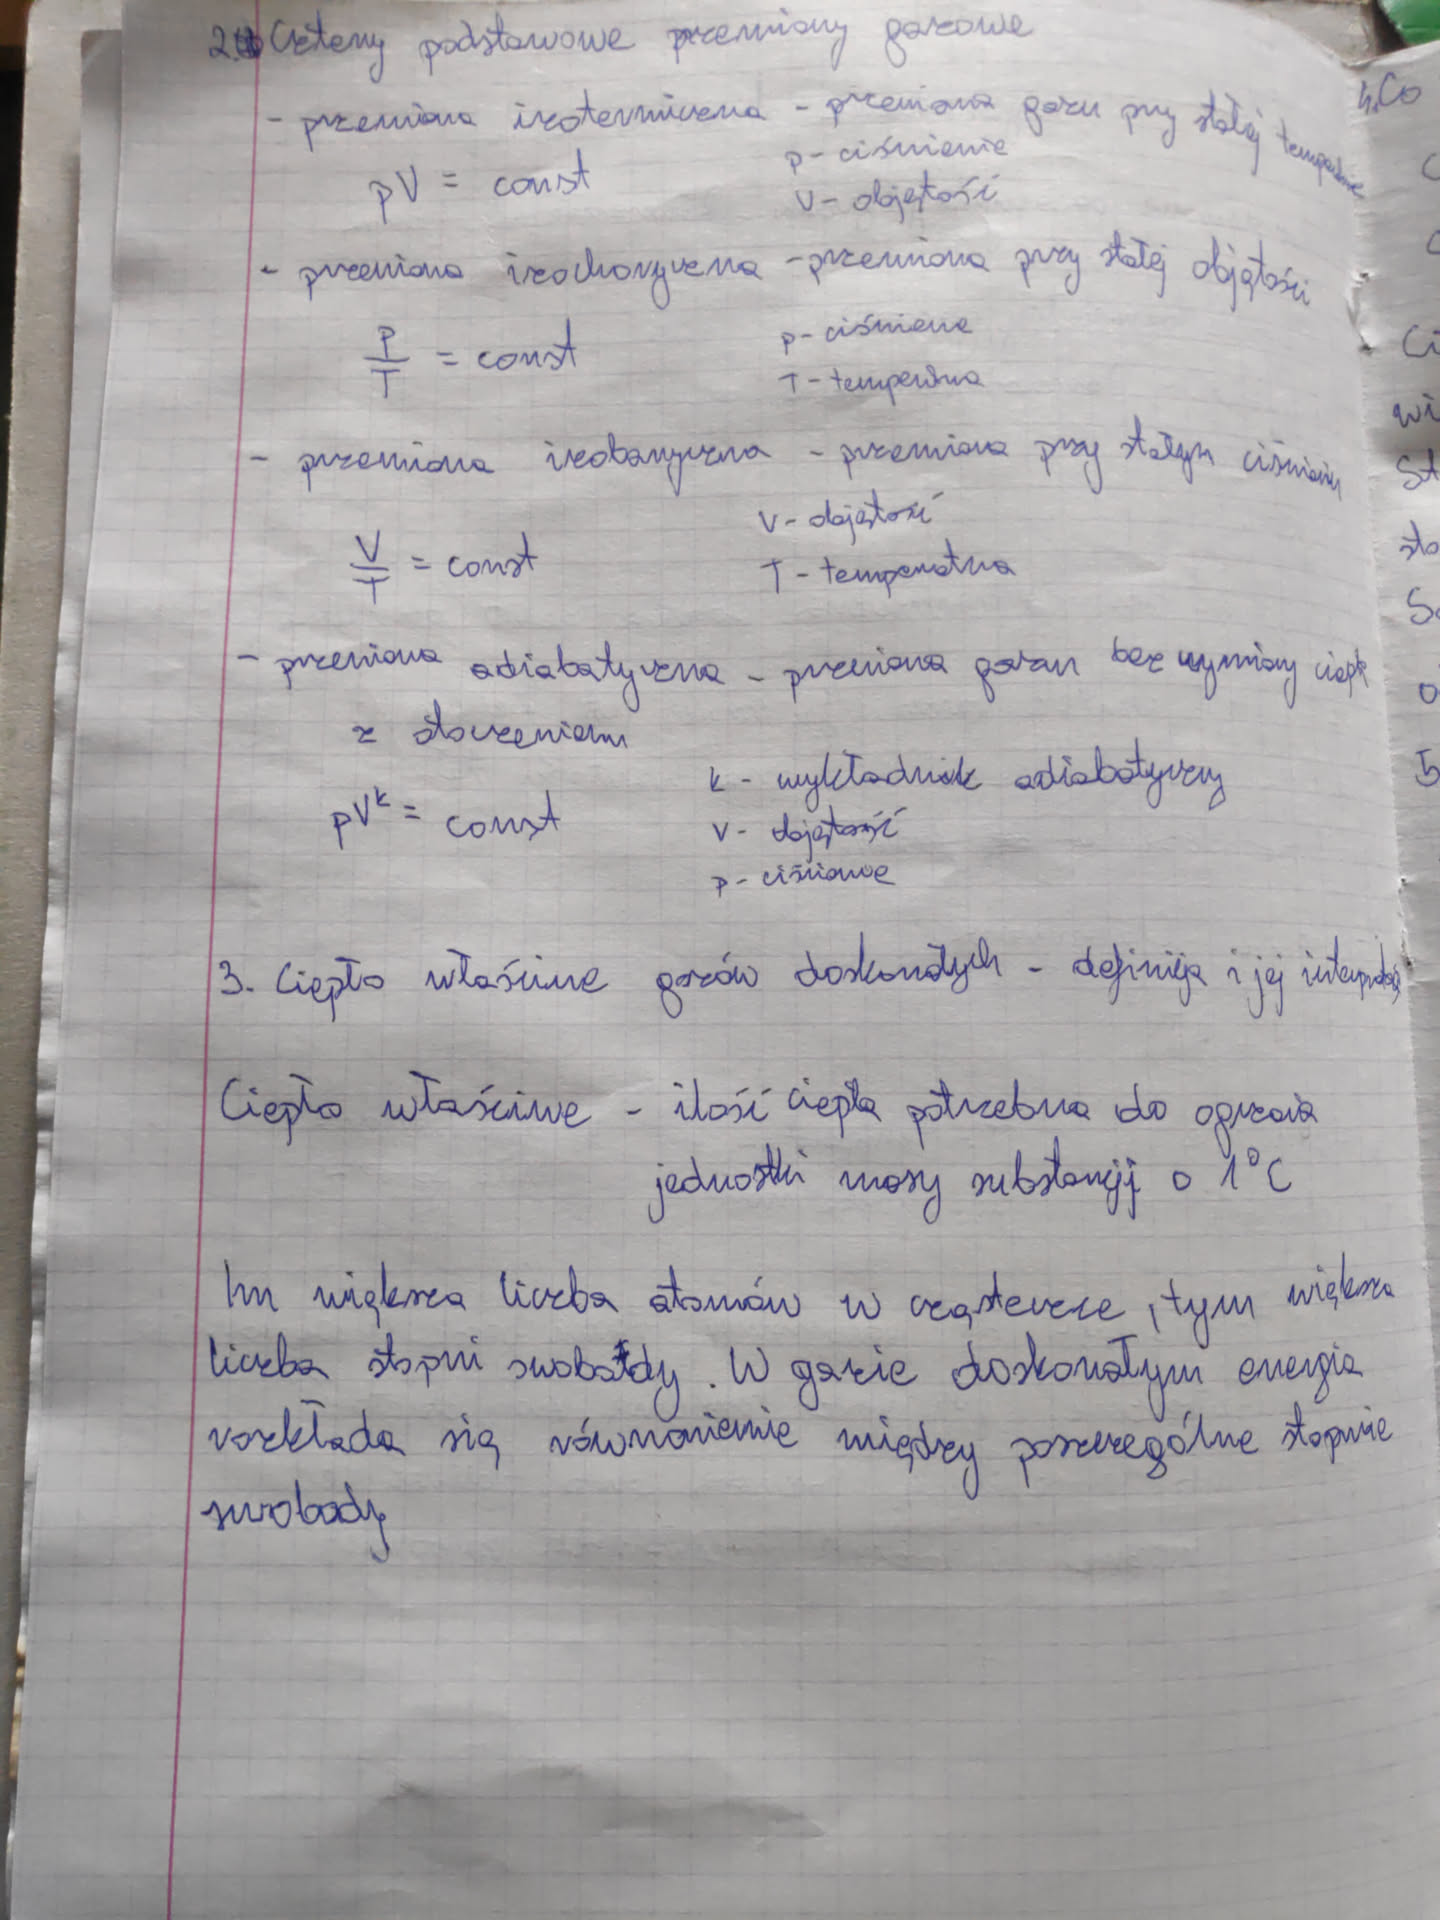 2. Cztery podstawowe przemiany gazowe
- przemiana izotermiczna - przemiana gazu przy stałej temperaturze
pV = const
p - ciśnienie
V - objętość
- przemiana izochoryczna - przemiana przy stałej objętości
p/T = const
p - ciśnienie
T - temperatura
- przemiana izobaryczna - przemiana przy stałym ciśnieniu
V/T = const
V - objętość
T - temperatura
- przemiana adiabatyczna - przemiana gazu bez wymiany ciepła
z otoczeniem
pV^k = const
k - wykładnik adiabatyczny
V - objętość
p - ciśnienie
3. Ciepło właściwe gazów doskonałych - definicja i jej interpretacja
Ciepło właściwe - ilość ciepła potrzebna do ogrzania
jednostki masy substancji o 1°C
Im większa liczba atomów w cząsteczce, tym większa
liczba stopni swobody. W gazie doskonałym energia
rozkłada się równomiernie między poszczególne stopnie
swobody
4. Co
Ci
wi
5